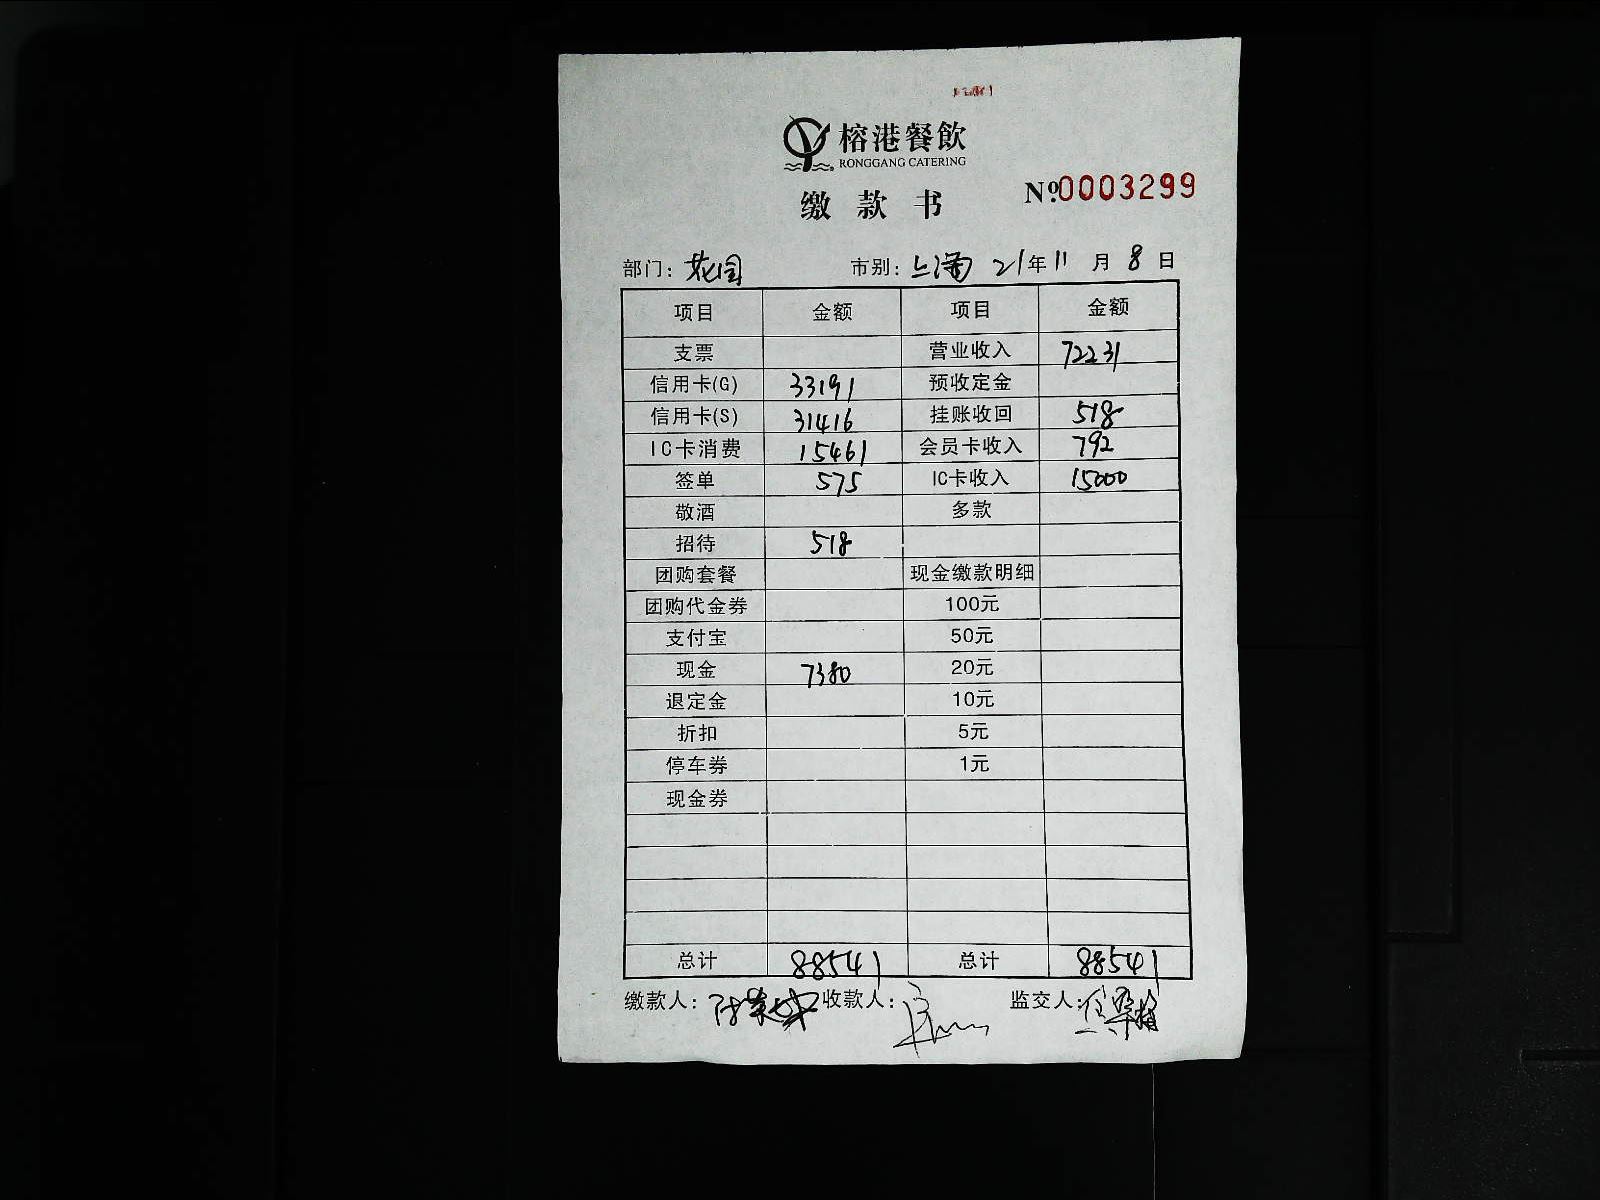 榕港餐飲
RONGGANG CATERING
缴款书
№.0003299
部门: 花园 市别: 上海 21年11月8日
项目 金额 项目 金额
支票 营业收入 72231
信用卡(G) 33191 预收定金
信用卡(S) 31416 挂账收回 518
IC卡消费 15461 会员卡收入 792
签单 575 IC卡收入 15000
敬酒 多款
招待 518
团购套餐 现金缴款明细
团购代金券 100元
支付宝 50元
现金 7380 20元
退定金 10元
折扣 5元
停车券 1元
现金券
总计 88541 总计 88541
缴款人: 收款人: 监交人: